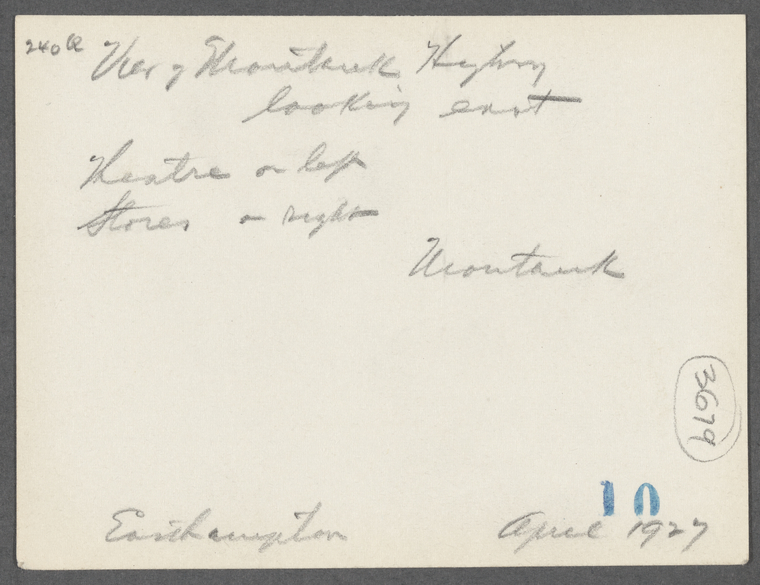 240a View of Montauk Highway
looking east
Theatre on left
Stores on right
Montauk
3679
10
Easthampton April 1927